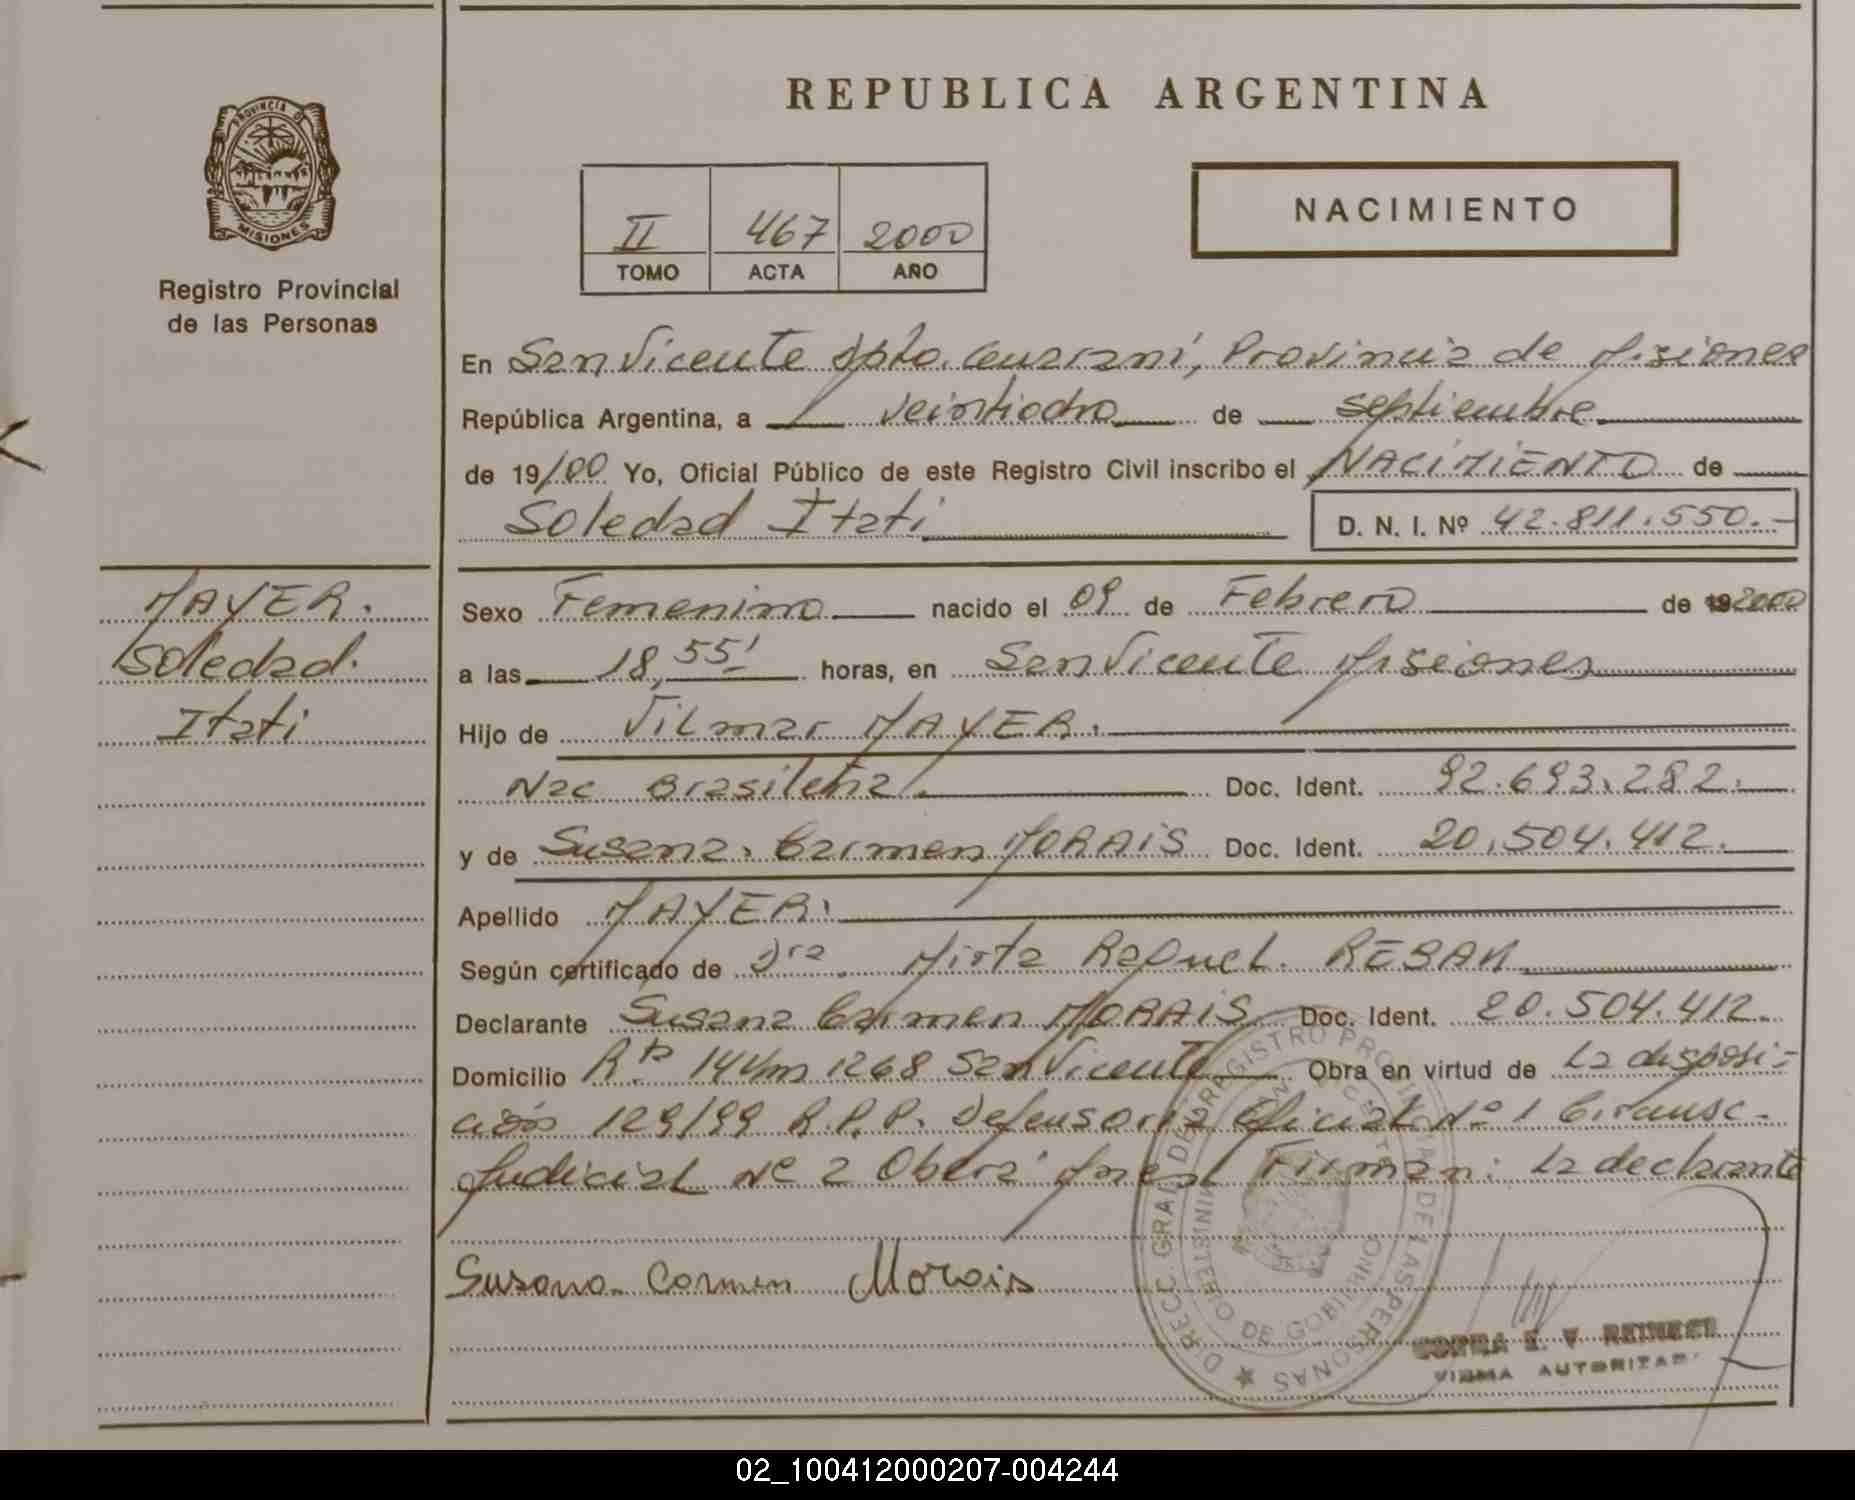 PROVINCIA DE
MISIONES
Registro Provincial
de las Personas
MAYER.
Soledad.
Itati
REPUBLICA ARGENTINA
II 467 2000
TOMO ACTA AÑO
NACIMIENTO
En San Vicente Dpto. Guarani, Provincia de Misiones
República Argentina, a veintiocho de septiembre
de 19/00 Yo, Oficial Público de este Registro Civil inscribo el NACIMIENTO de
Soledad Itati D. N. I. Nº 42.811.550.-
Sexo Femenino nacido el 09 de Febrero de 2000
a las 18,55' horas, en San Vicente Misiones
Hijo de Vilmar MAYER.
Nac Brasileña. Doc. Ident. 92.693.282.
y de Susana Carmen MORAIS Doc. Ident. 20.504.412.
Apellido MAYER.
Según certificado de Dra. Mirta Raquel.
Declarante Susana Carmen MORAIS Doc. Ident. 20.504.412.
Domicilio Rta 14 Km 1268 San Vicente Obra en virtud de La disposi-
ción 129/99 R.P.P. Defensoria Oficial Nº 1 Circunsc-
Judicial Nº 2 Oberá Mnes Firman: La declarante
Susana Carmen Morais
DIRECC. GRAL. DEL REGISTRO PROVINCIAL DE LAS PERSONAS
MINISTERIO DE GOBIERNO
E. V.
FIRMA AUTORIZADA
02_100412000207-004244